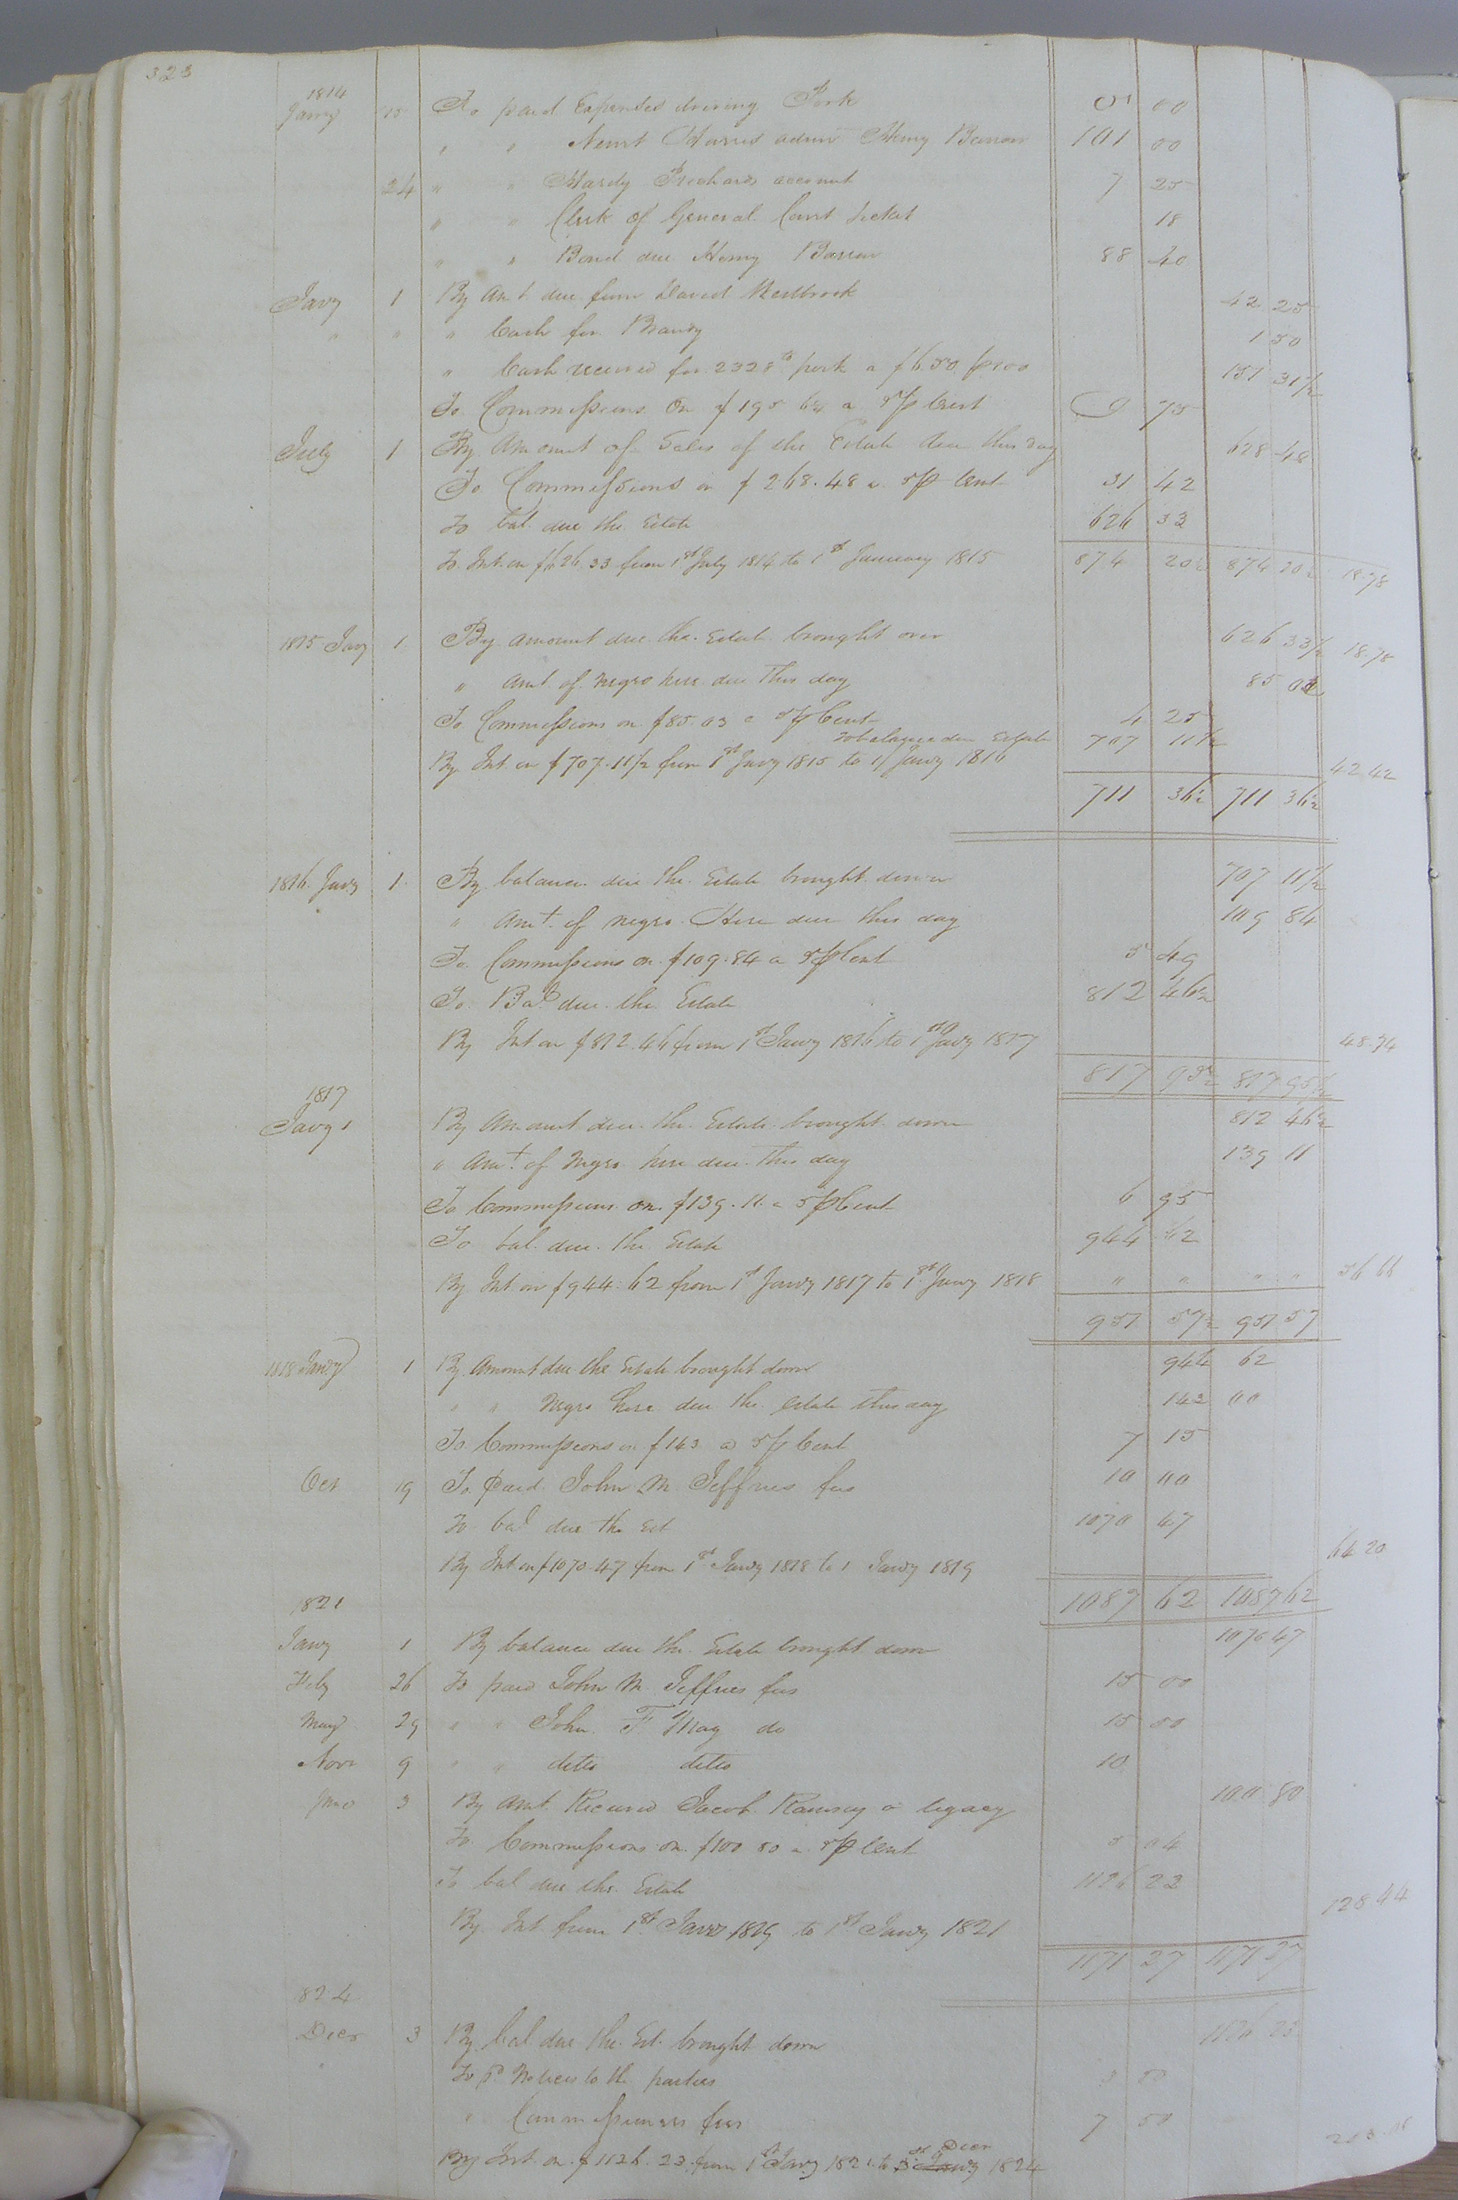 323
1814
Jany 15 To paid Expenses driving Pork 5 00
" " Newit Harris admr Henry Barrow 101 00
24 " " Hardy account 7 25
" " Clerk of General Court ticket 18
" " Bond due Henry Barrow 88 40
Jany 1 By Amt due from David Westbrook 42 25
" " " Cash for Brandy 1 50
" Cash received for 2328 lb pork a $6.50 pr 100 151 31½
To Commissions on $195 64 a 5 p Cent 9 75
July 1 By Amount of Sales of the Estate due this day 628 48
To Commissions on $ 268.48 a 5 p Cent 31 42
To bal due the Estate 626 33
To Int on $626 33 from 1st July 1814 to 1st January 1815 874 20½ 874 20½ 18.78
1815 Jany 1 By amount due the Estate brought over 626 33½ 18.78
" Amt of Negro hire due this day 85 03
To Commissions on $85.03 a 5 p Cent 4 25
To balance due Estate 707 11½
By Int on $707.11½ from 1st Jany 1815 to 1 Jany 1816 42 42
711 36½ 711 36½
1816 Jany 1 By balance due the Estate brought down 707 11½
" Amt of negro Hire due this day 109 84
To Commissions on $109.84 a 5 p Cent 5 49
To Bal due the Estate 812 46½
By Int on $812.46 from 1st Jany 1816 to 1st Jany 1817 48.74
817 95½ 817 95½
1817
Jany 1 By Amount due the Estate brought down 812 46½
" Amt of Negro hire due this day 139 11
To Commissions on $139.11 a 5 p Cent 6 95
To bal due the Estate 944 62
By Int on $944.62 from 1st Jany 1817 to 1st Jany 1818 " " " " 56 66
951 57½ 951 57
1818 Jany 1 By Amount due the Estate brought down 944 62
" " Negro hire due the estate this day 143 00
To Commissions on $143 a 5 p Cent 7 15
Oct 19 To paid John M Jeffries fees 10 00
To bal due the Est 1070 47
By Int on $1070.47 from 1st Jany 1818 to 1 Jany 1819 64 20
1087 62 1087 62
1821
Jany 1 By balance due the Estate brought down 1070 47
Feby 26 To paid John M Jeffries fees 15 00
May 29 " " John F May do 15 00
Novr 9 " " ditto ditto 10
June 3 By Amt Received Jacob Ramsey a legacy 100 80
To Commissions on $100 80 a 5 p Cent 5 04
To bal due the Estate 1126 23
By Int from 1st Jany 1819 to 1st Jany 1821 128 44
1171 27 1171 27
824
Decr 3 By bal due the Est brought down 1126 23
To pd Notices to the parties 50
" Commissioners fees 7 50
By Int on $1126.23 from 1st Jany 1821 to 3 Jany Decr 1824